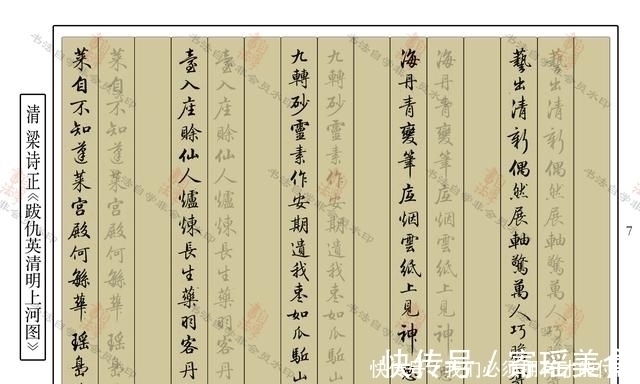 藝出清新偶然展軸驚萬人巧
藝出清新偶然展軸驚萬人巧
海丹青夔筆底烟雲紙上見神
海丹青夔筆底烟雲紙上見神
九轉砂靈素作安期遺我棗如瓜駈山
九轉砂靈素作安期遺我棗如瓜駈山
臺入座賒仙人爐煉長生藥羽客丹
臺入座賒仙人爐煉長生藥羽客丹
菜自不知蓬萊宮殿何繇華瑤島
菜自不知蓬萊宮殿何繇華瑤島
清 梁诗正《跋仇英清明上河图》
7
书法自学非会员水印
快传号 / 寄瑶美